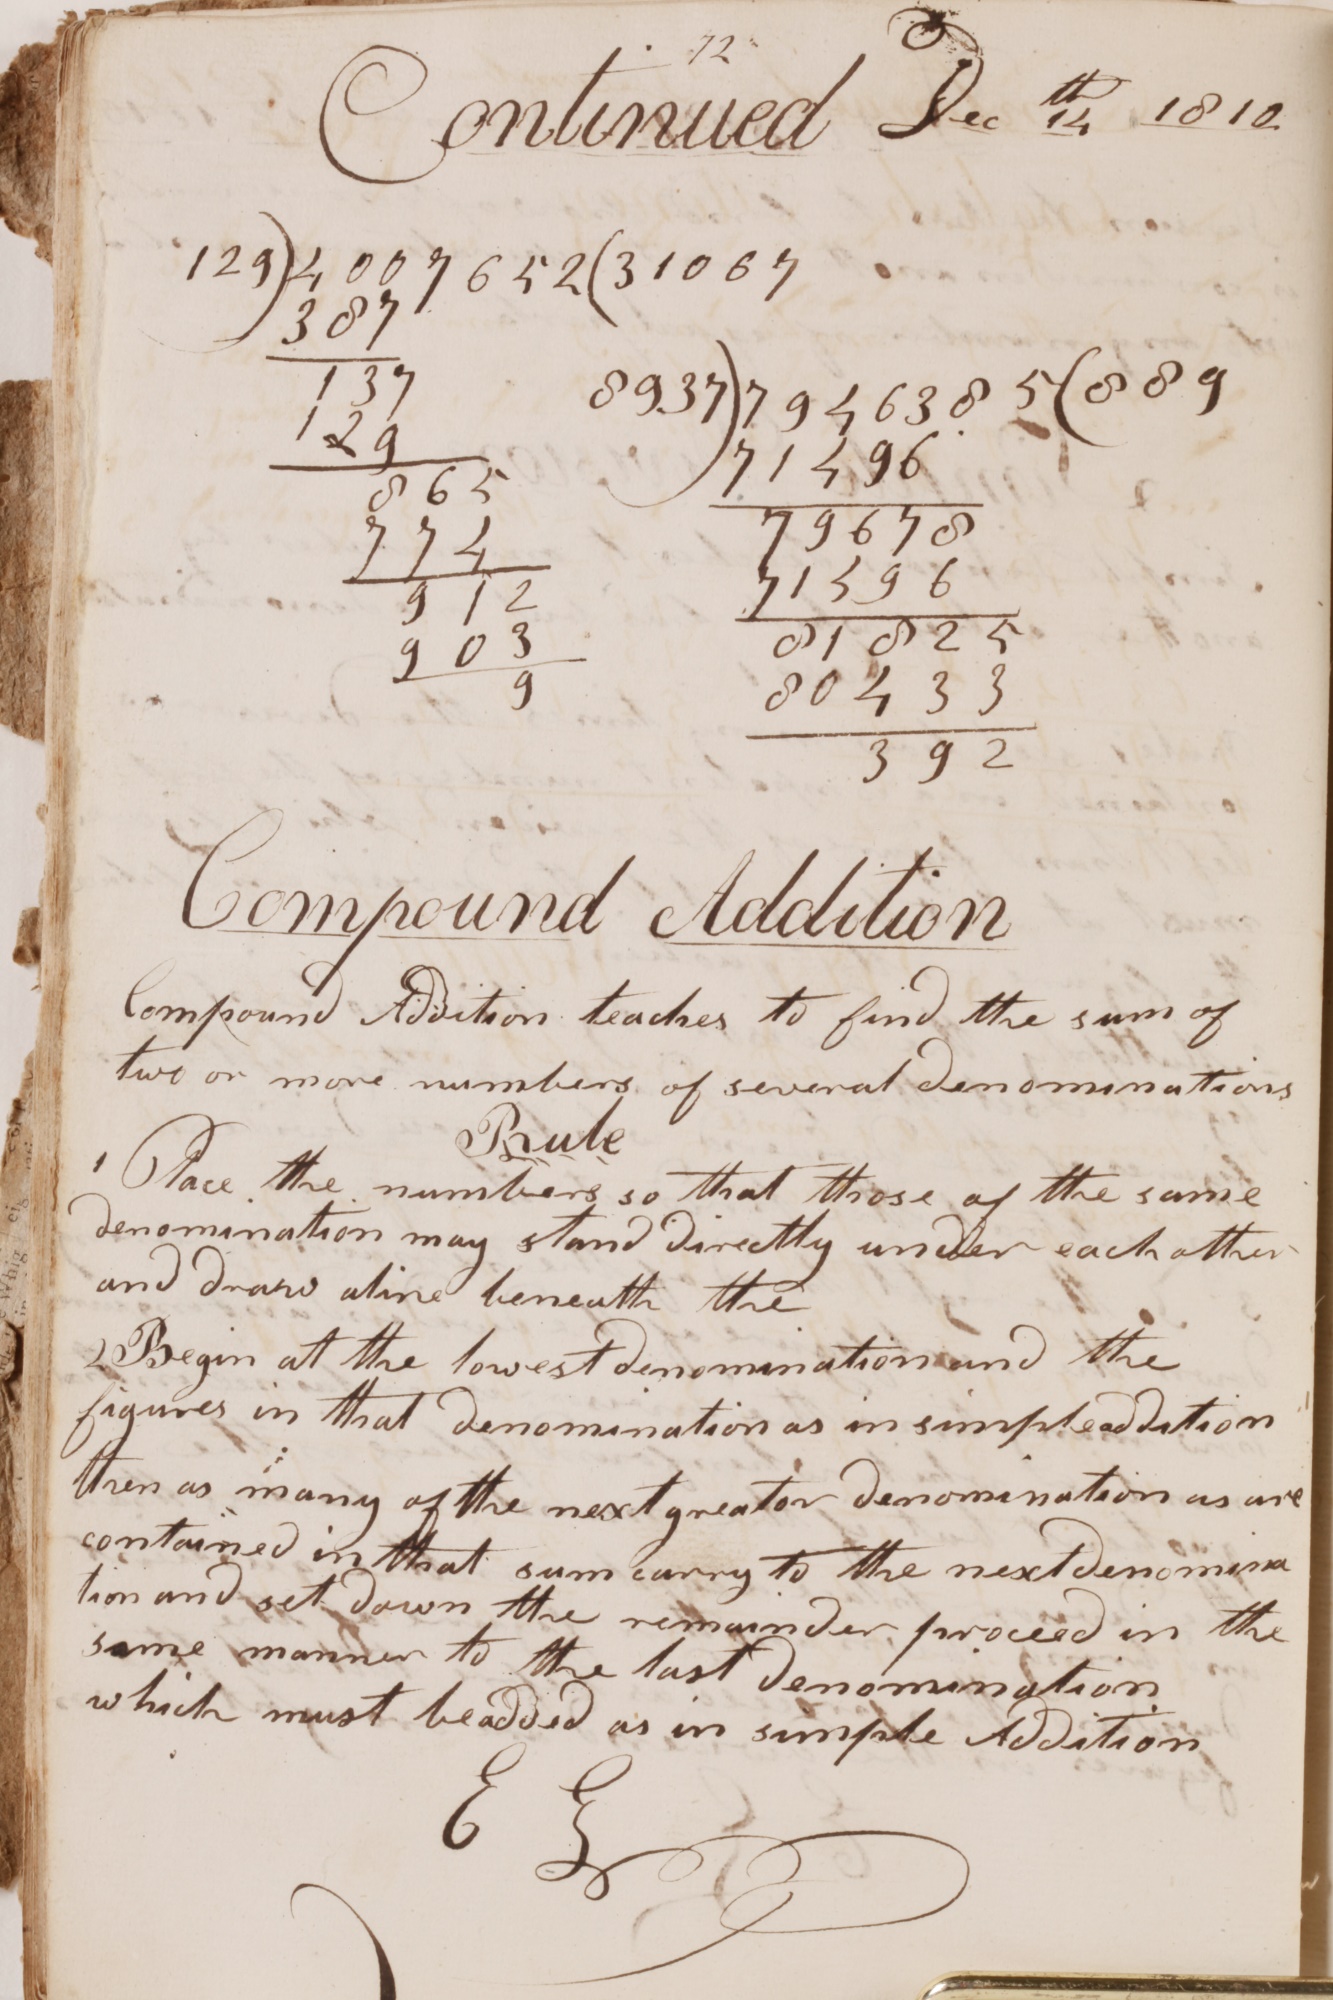 12
Continued Dec 14th 1810
129)4007652(31067
387
137
129
865
774
912
903
9
8937)7946385(889
71496
79678
71496
81825
80433
392
Compound Addition
Compound Addition teaches to find the sum of
two or more numbers of several denominations
Rule
1 Place the numbers so that those of the same
denomination may stand directly under each other
and draw aline beneath the
2 Begin at the lowest denomination and the
figures in that denomination as in simple addition
then as many of the next greator denomination as are
contained in that sum carry to the next denomina
tion and set down the remainder proceed in the
same manner to the last denomination
which must be added as in simple Addition